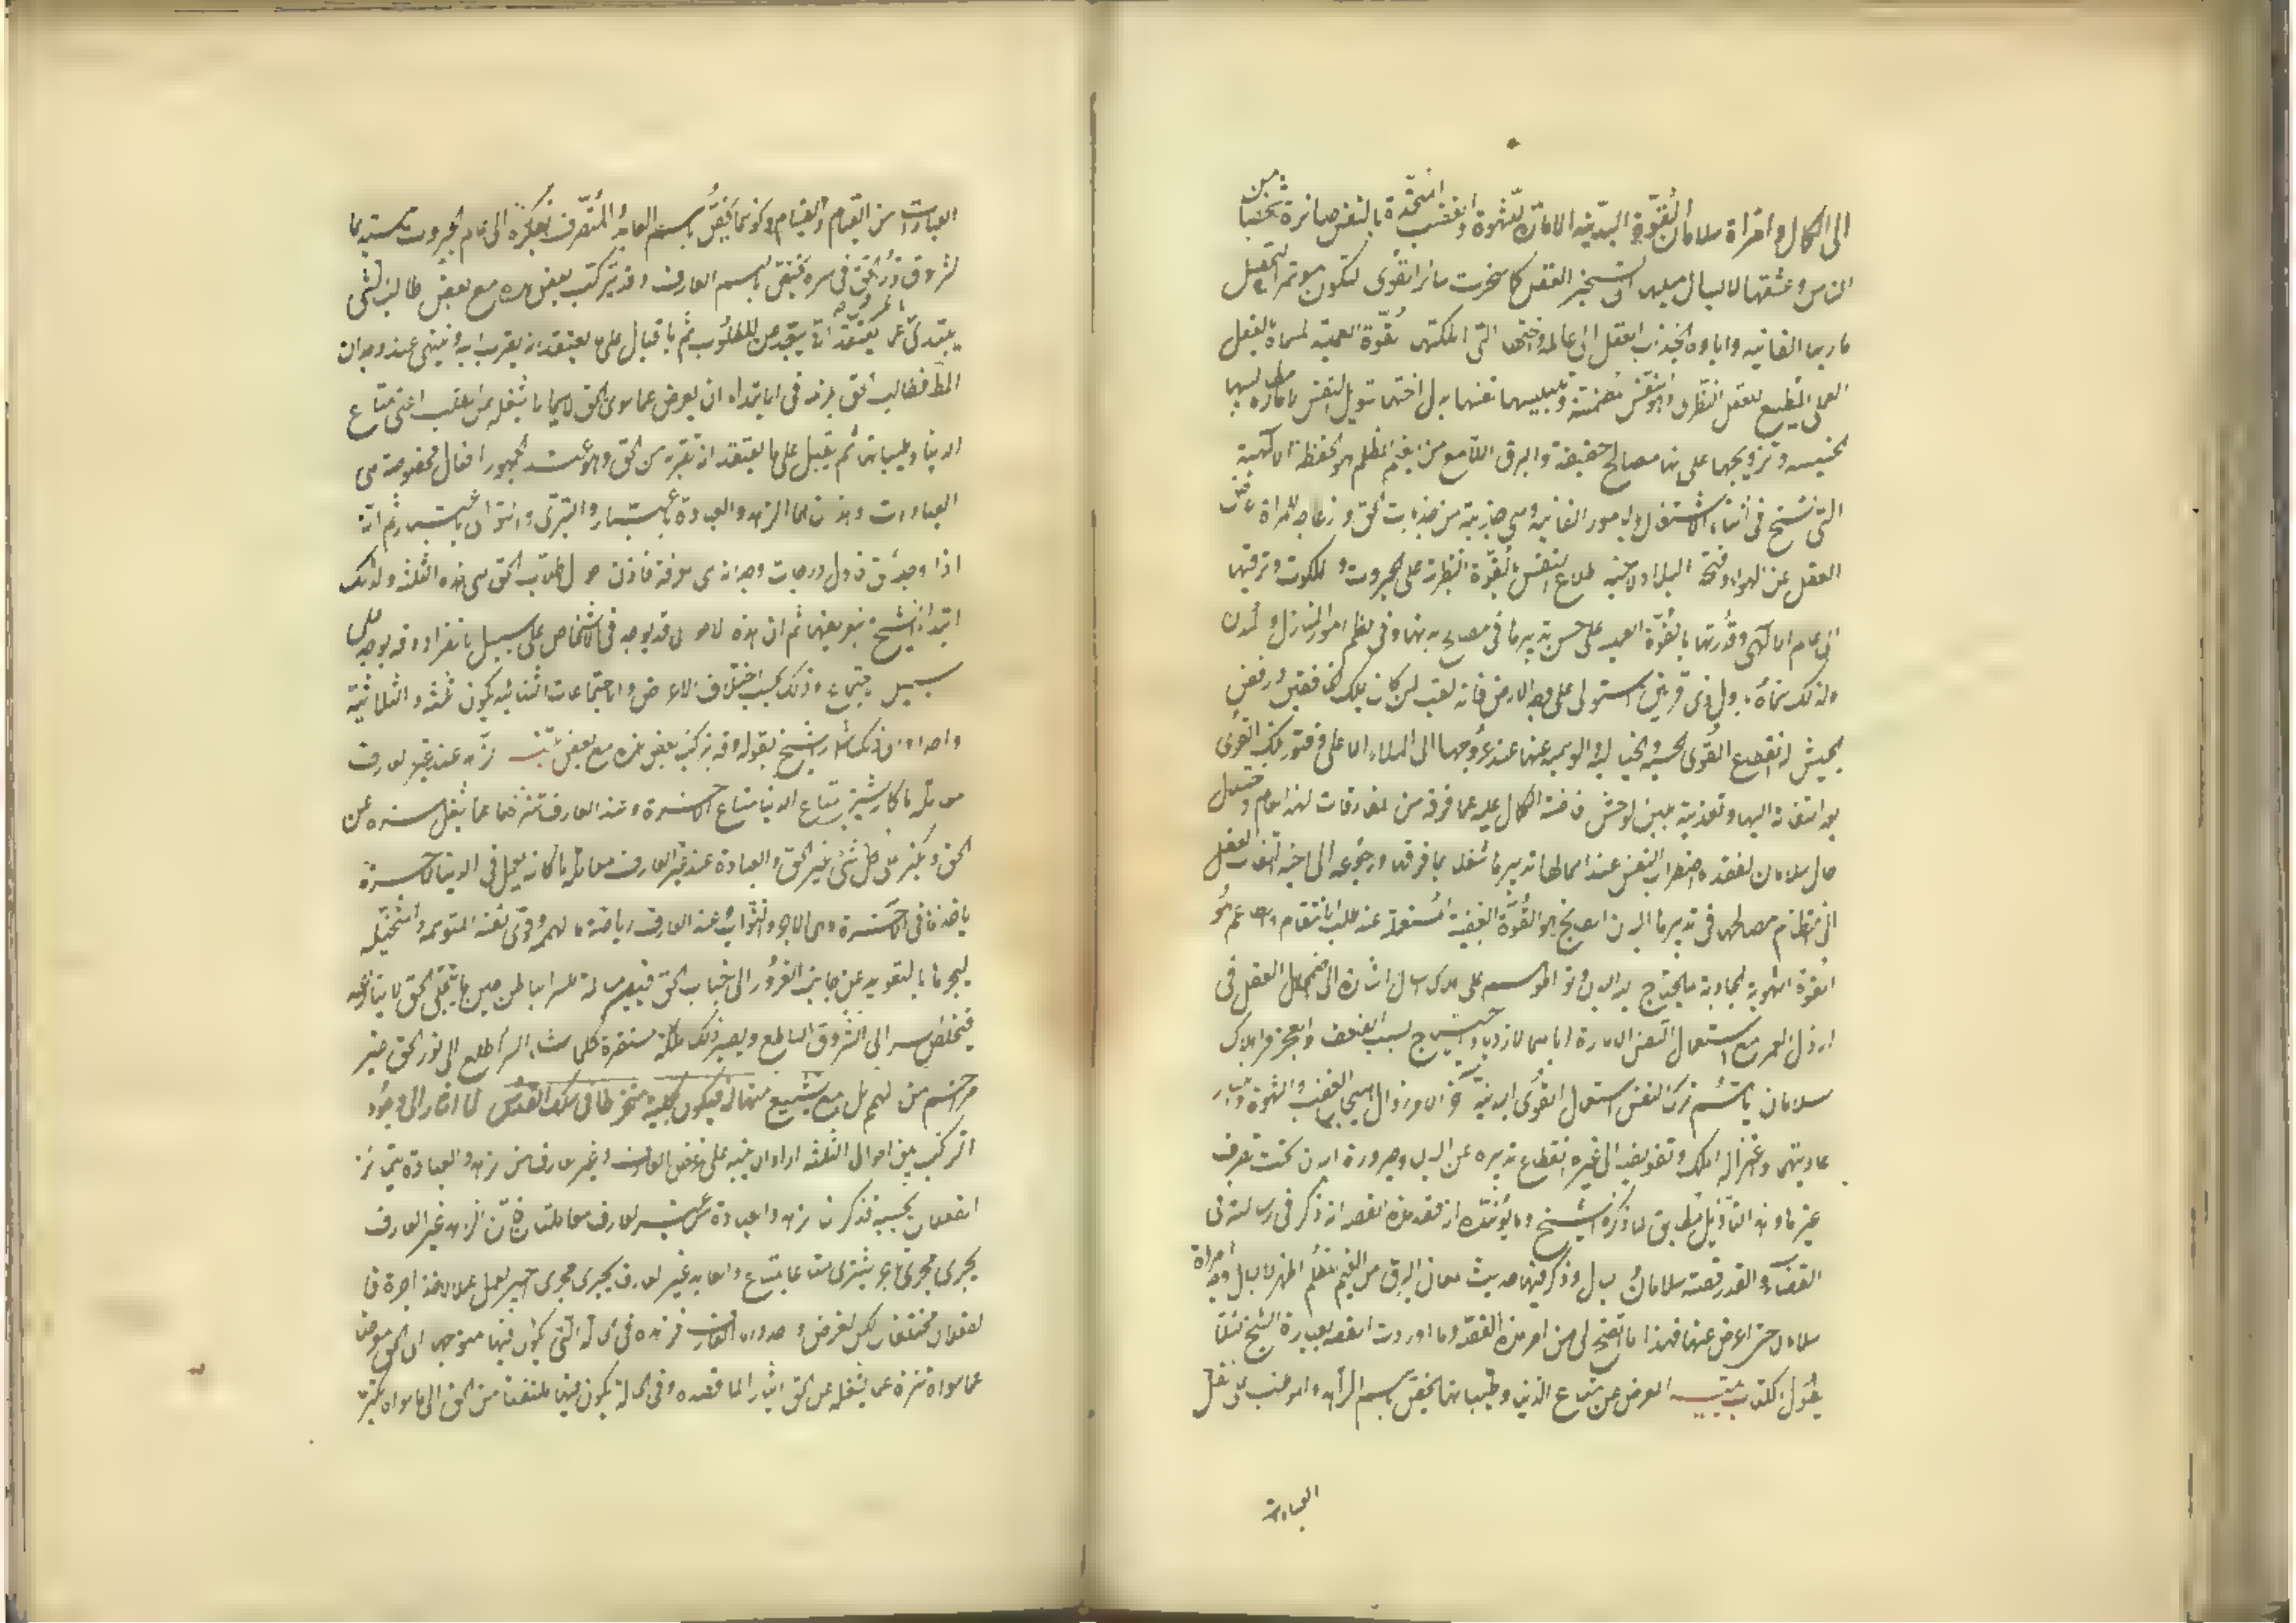 الى الكمال وامراة سلامان القوة البدنية الامارة للشهوة والغضب المتحدة بالنفس صائرة شخصا من
الناس وعشقها لابسال ميلها الى تسخير العقل كما سخرت سائر القوى ليكون مؤتمرا لها في تحصيل
مآربها الفانية واباؤه انجذاب العقل الى عالمه واختها التى املكتها القوة العملية المسماة بالعقل
العملى المطيع للعقل النظرى وهو النفس المطمئنة وتلبيسها نفسها بدل اختها تسويل النفس الامارة مطالبها
الخسيسة وترويجها على انها مصالح حقيقية والبرق اللامع من الغيم المظلم هو الخطفة الالهية
التى تسنح فى اثناء الاشتغال بالامور الفانية وهى جذبة من جذبات الحق وازعاجه للمراة اعراض
العقل عن الهوى وفتحه البلاد لاخيه اطلاع النفس بالقوة النظرية على الجبروت والملكوت وترقيها
الى العالم الالهى وقدرتها بالقوة العملية على حسن تدبيرها فى مصالح بدنها وفى نظم امور المنازل والمدن
ولذلك سماه باول ذى قرنين استولى على وجه الارض فانه لقب لمن كان يملك الخافقين ورفض
الجيش له انقطاع القوى الحسية والخيالية والوهمية عنها عند عروجها الى الملاء الاعلى وفتور تلك القوى
لعدم التفاته اليها وتغذيته بلبن الوحش افاضة الكمال عليه عما فوقه من المفارقات لهذا العالم واختلال
حال سلامان لفقده اضطراب النفس عند اهمالها تدبيرها شغلا بما فوقها ورجوعه الى اخيه التفات العقل
الى انتظام مصالحها فى تدبيرها البدن والطابخ هو القوة الغضبية المشتعلة عند طلب الانتقام والطاعم هو
القوة الشهوية الجاذبة لما يحتاج اليه البدن وتواطؤهم على هلاك ابسال اشارة الى اضمحلال العقل فى
ارذل العمر مع استعمال النفس الامارة اياهما لازدياد الاحتياج بسبب الضعف والعجز واهلاك
سلامان اياهم ترك النفس استعمال القوى البدنية آخر العمر وزوال هيجان الغضب والشهوة وانكسار
عاديتهما واعتزاله الملك وتفويضه الى غيره انقطاع تدبيره عن البدن وصيرورة البدن تحت تصرف
غيرها وهذا التأويل مطابق لما ذكره الشيخ ومما يؤيد انه قصد هذه القصة انه ذكر فى رسالته فى
القضاء والقدر قصة سلامان وابسال وذكر فيها حديث لمعان البرق من الغيم المظلم الذى اظهر لابسال وجه امراة
سلامان حتى اعرض عنها فهذا ما اتضح لى من امر هذه القصة وما اوردت القصة بعبارة الشيخ لئلا
يطول الكتاب تنبيه المعرض عن متاع الدنيا وطيباتها يخص باسم الزاهد والمواظب على نفل
العبادات
العبادات من القيام والصيام ونحوهما يخص باسم العابد والمتصرف بفكره الى عالم الجبروت مستديما
لشروق نور الحق فى سره يختص باسم العارف وقد يتركب بعض هذه مع بعض طالب الشئ
يبتدئ باعراض عما يعتقد انه يبعده عن المطلوب ثم باقبال على ما يعتقد انه يقرب اليه وينتهى عند وجدان
المط فطالب الحق يلزمه فى الابتداء ان يعرض عما سوى الحق لا سيما ما يشغله عن الطلب اعنى متاع
الدنيا وطيباتها ثم يقبل على ما يعتقد انه يقربه من الحق وهو عند الجمهور افعال مخصوصة هى
العبادات وهذان هما الزهد والعبادة باعتبار والتبرى والتولى باعتبار ثم انه
اذا وجد الحق فاول درجات وجدانه هى معرفة فاذن احوال طلاب الحق هى هذه الثلثة ولذلك
ابتداء الشيخ بتعريفها ثم ان هذه الاحوال قد توجد فى الاشخاص على سبيل الانفراد وقد يوجد على
سبيل الاجتماع وذلك بحسب اختلاف الاغراض والاجتماعات الثنائية تكون ثلثة والثلاثية
واحدا والى ذلك اشار الشيخ بقوله وقد يتركب بعض هذه مع بعض تنبيه الزهد عند غير العارف
معاملة ما كانه يشترى بمتاع الدنيا متاع الاخرة وعند العارف تنزه ما عما يشغل سره عن
الحق وتكبر على كل شئ غير الحق والعبادة عند غير العارف معاملة ما كانه يعمل فى الدنيا لاجرة
ياخذها فى الاخرة وهى الاجر والثواب وعند العارف رياضة ما لهممه وقوى نفسه المتوهمة والمتخيلة
ليجرها بالتعويد عن جانب الغرور الى جناب الحق فتصير مسالمة للسر الباطن حين ما يتجلى الحق لا ينازعه
فيخلص السر الى الشروق الساطع ويصير ذلك ملكة مستقرة كلما شاء السر اطلع الى نور الحق غير
مزاحم من الهمم بل مع تشييع منها له فيكون بكليته منخرطا فى سلك القدس لما اشار الى وجود
التركيب بين احوال الثلثة اراد ان ينبه على غرض العارف وغير العارف من الزهد والعبادة ليتمايز
الفعلان بحسبه فذكر ان الزهد والعبادة عن غير العارف معاملتان فان الزاهد غير العارف
يجرى مجرى تاجر يشترى متاعا بمتاع والعابد غير العارف يجرى مجرى اجير يعمل عملا لاخذ اجرة فا
لفعلان مختلفان لكن الغرض واحد واما العارف فزهده فى الحالة التى يكون فيها متوجها الى الحق معرضا
عما سواه تنزه عما يشغله عن الحق ايثارا لما قصده وفى الحالة يكون فيها ملتفتا من الحق الى ما سواه تكبر